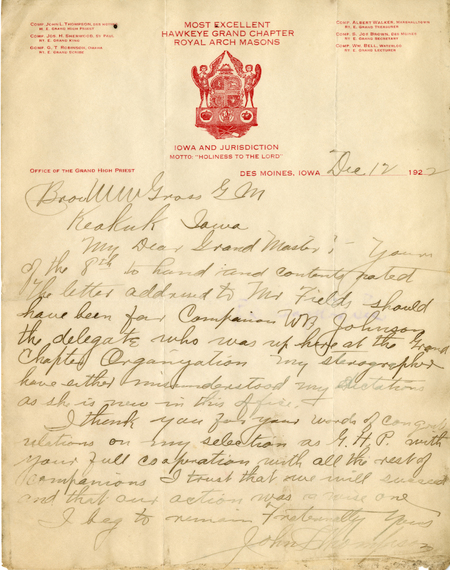 COMP. JOHN L. THOMPSON, DES MOINES
M. E. GRAND HIGH PRIEST
COMP. JOS. H. SHERWOOD, ST. PAUL
RT. E. GRAND KING
COMP. G. T. ROBINSON,
RT. E. GRAND SCRIBE
MOST EXCELLENT
HAWKEYE GRAND CHAPTER
ROYAL ARCH MASONS
COMP. ALBERT WALKER, MARSHALLTOWN
RT. E. GRAND TREASURER
COMP. S. JOE BROWN, DES MOINES
RT. E. GRAND SECRETARY
COMP. WM. BELL, WATERLOO
RT. E. GRAND LECTURER
IOWA AND JURISDICTION
MOTTO: "HOLINESS TO THE LORD"
OFFICE OF THE GRAND HIGH PRIEST
DES MOINES, IOWA Dec 12 1922
Bro Gross G M
Keokuk Iowa
My Dear Grand Master:- Yours
of the 8th to hand and contents noted
The letter addressed to Mr Fields should
have been for Companion Wm Johnson
the delegate who was up here at the Grand
Chapter Organization my stenographer
have either misunderstood my dictations
as she is new in this office.
I thank you for your words of congrat
ulations on my selection as G.H.P. with
your full cooperation with all the rest of
companions I trust that we will succeed
and that our action was a wise one
I beg to remain Fraternally Yours
John L Thompson